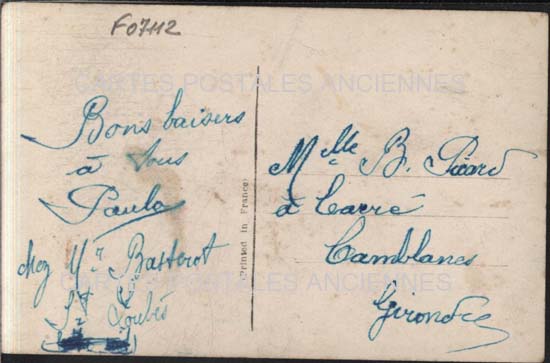 F07112
CARTES POSTALES ANCIENNES
Bons baisers
à tous
Paula
chez Mr Basterot
St Loubès
Printed in France
Melle B. Picard
à Carré
Camblanes
Gironde
CARTES POSTALES ANCIENNES